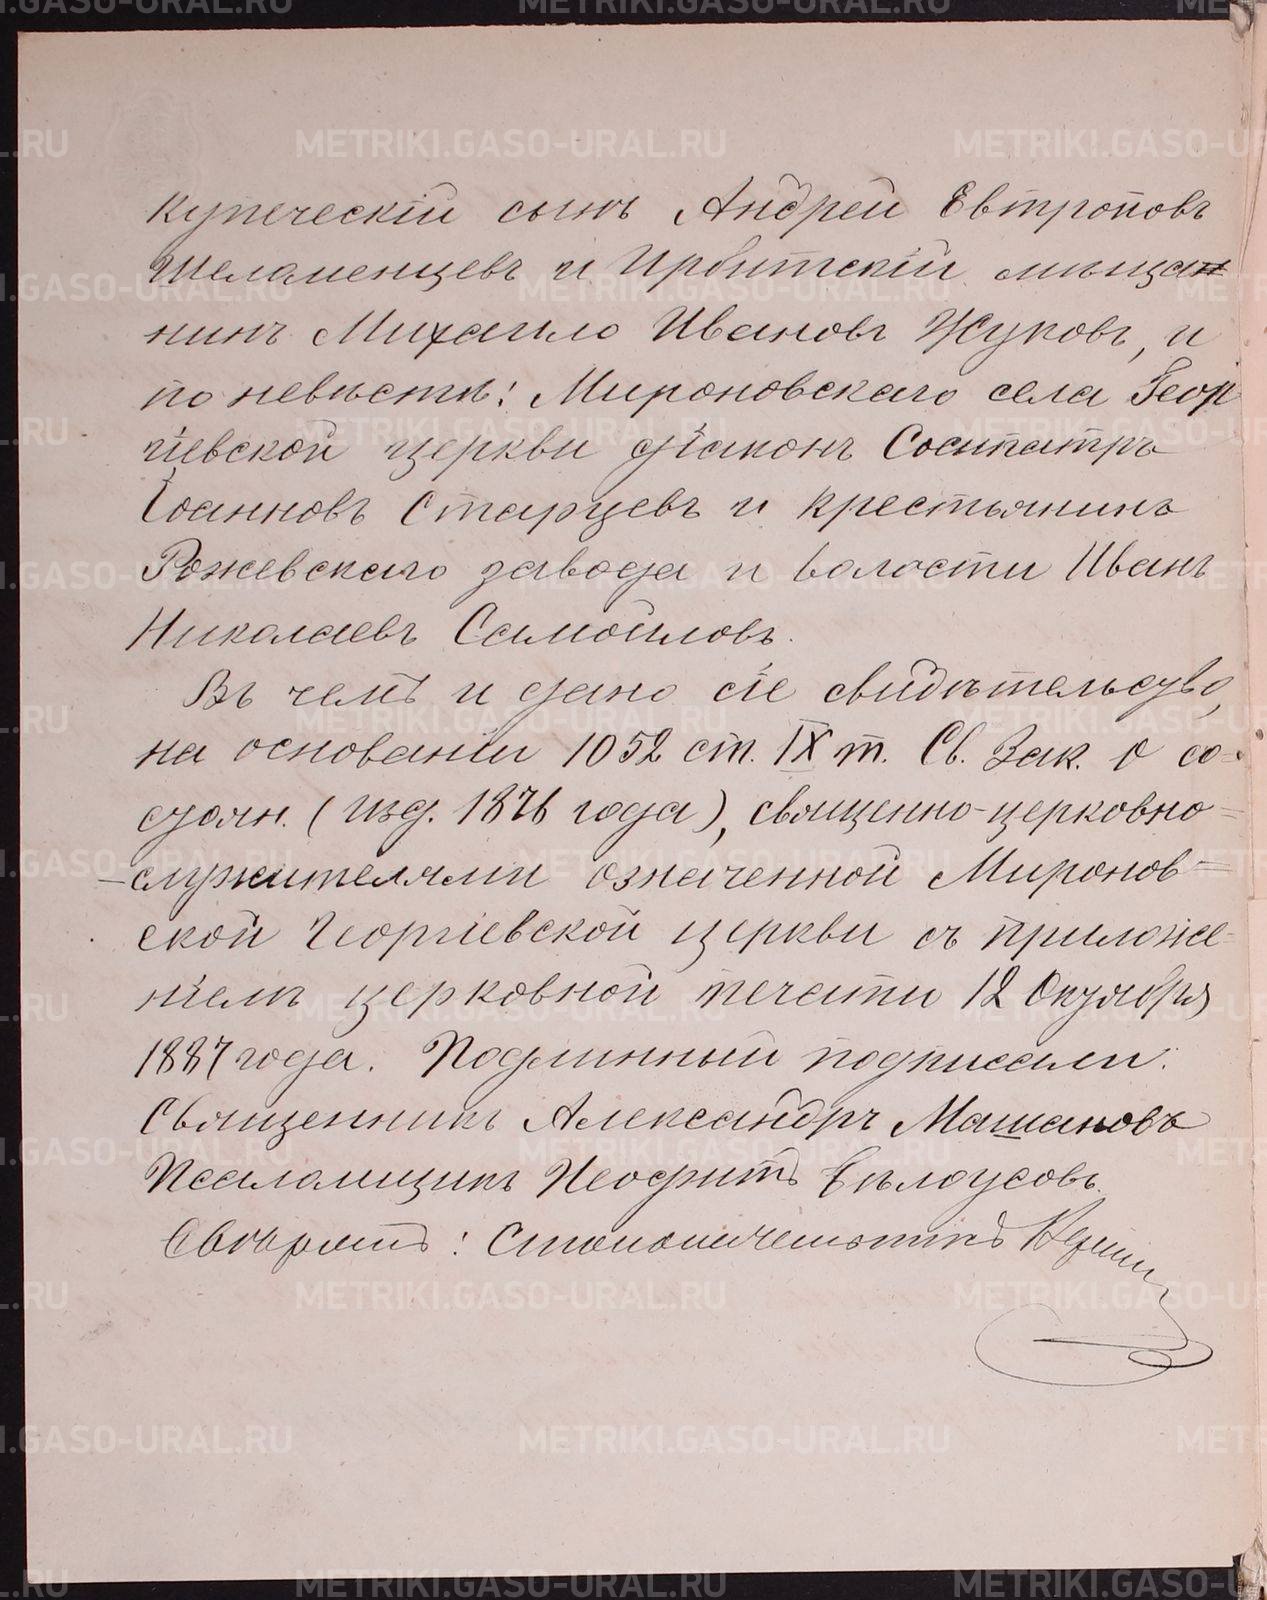 купеческій сынъ Андрей Евтроповъ
Шеламенцевъ и Ирбитскій мѣщан
нинъ Михаило Ивановъ Жуковъ, и
по невѣстѣ: Мироновскаго села Геор
гіевской церкви діаконъ Сосипатръ
Іоанновъ Старцевъ и крестьянинъ
Рожевскаго завода и волости Иванъ
Николаевъ Самойловъ.
Въ чемъ и дано сіе свидѣтельство,
на основаніи 1052 ст. IX т. Св. Зак. о со=
стоян. (изд. 1876 года), священно-церковно=
-служителями означенной Миронов=
ской Георгіевской церкви съ приложе=
ніемъ церковной печати 12 Октября
1887 года. Подлинный подписали:
Священникъ Александръ Машановъ
Псаломщикъ Неофитъ Бѣлоусовъ.
Столоначальникъ
METRIKI.GASO-URAL.RU